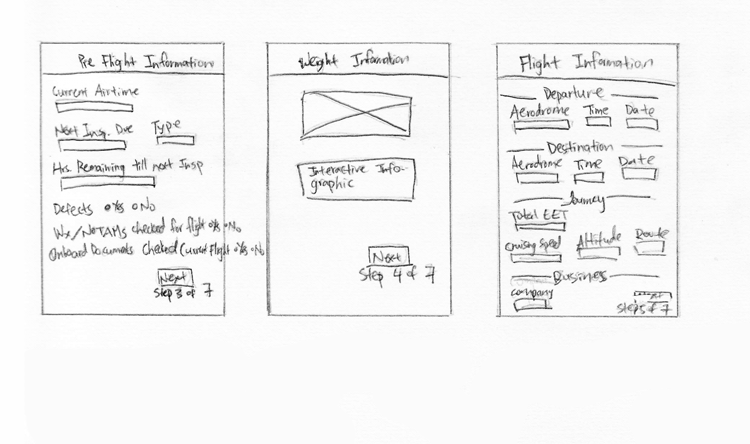 Pre Flight Information
Current Airtime
Next Insp. Due Type
Hrs. Remaining till next Insp
Defects o Yes o No
Wx/NOTAMs checked for flight o Yes o No
Onboard Documents Checked (Current Flight o Yes o No
Next
Step 3 of 7
Weight Information
Interactive Info-
graphic
Next
Step 4 of 7
Flight Information
Departure
Aerodrome Time Date
Destination
Aerodrome Time Date
Journey
Total EET
Cruising Speed Altitude Route
Business
Company
Step 5 of 7